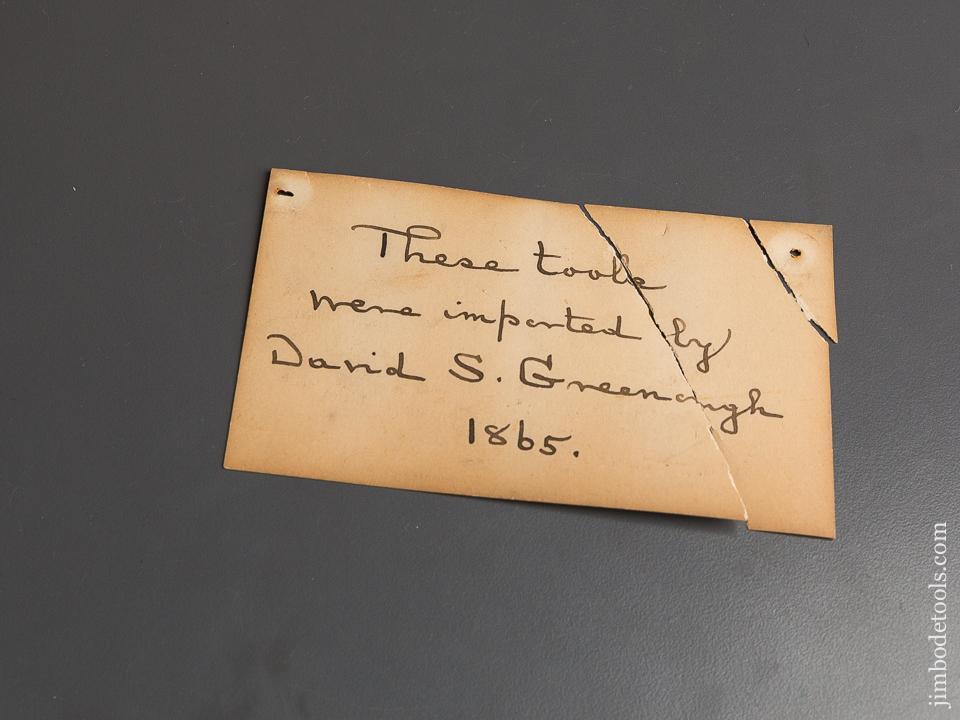 These tools
were imported by
David S. Greenough
1865.
jimbodetools.com